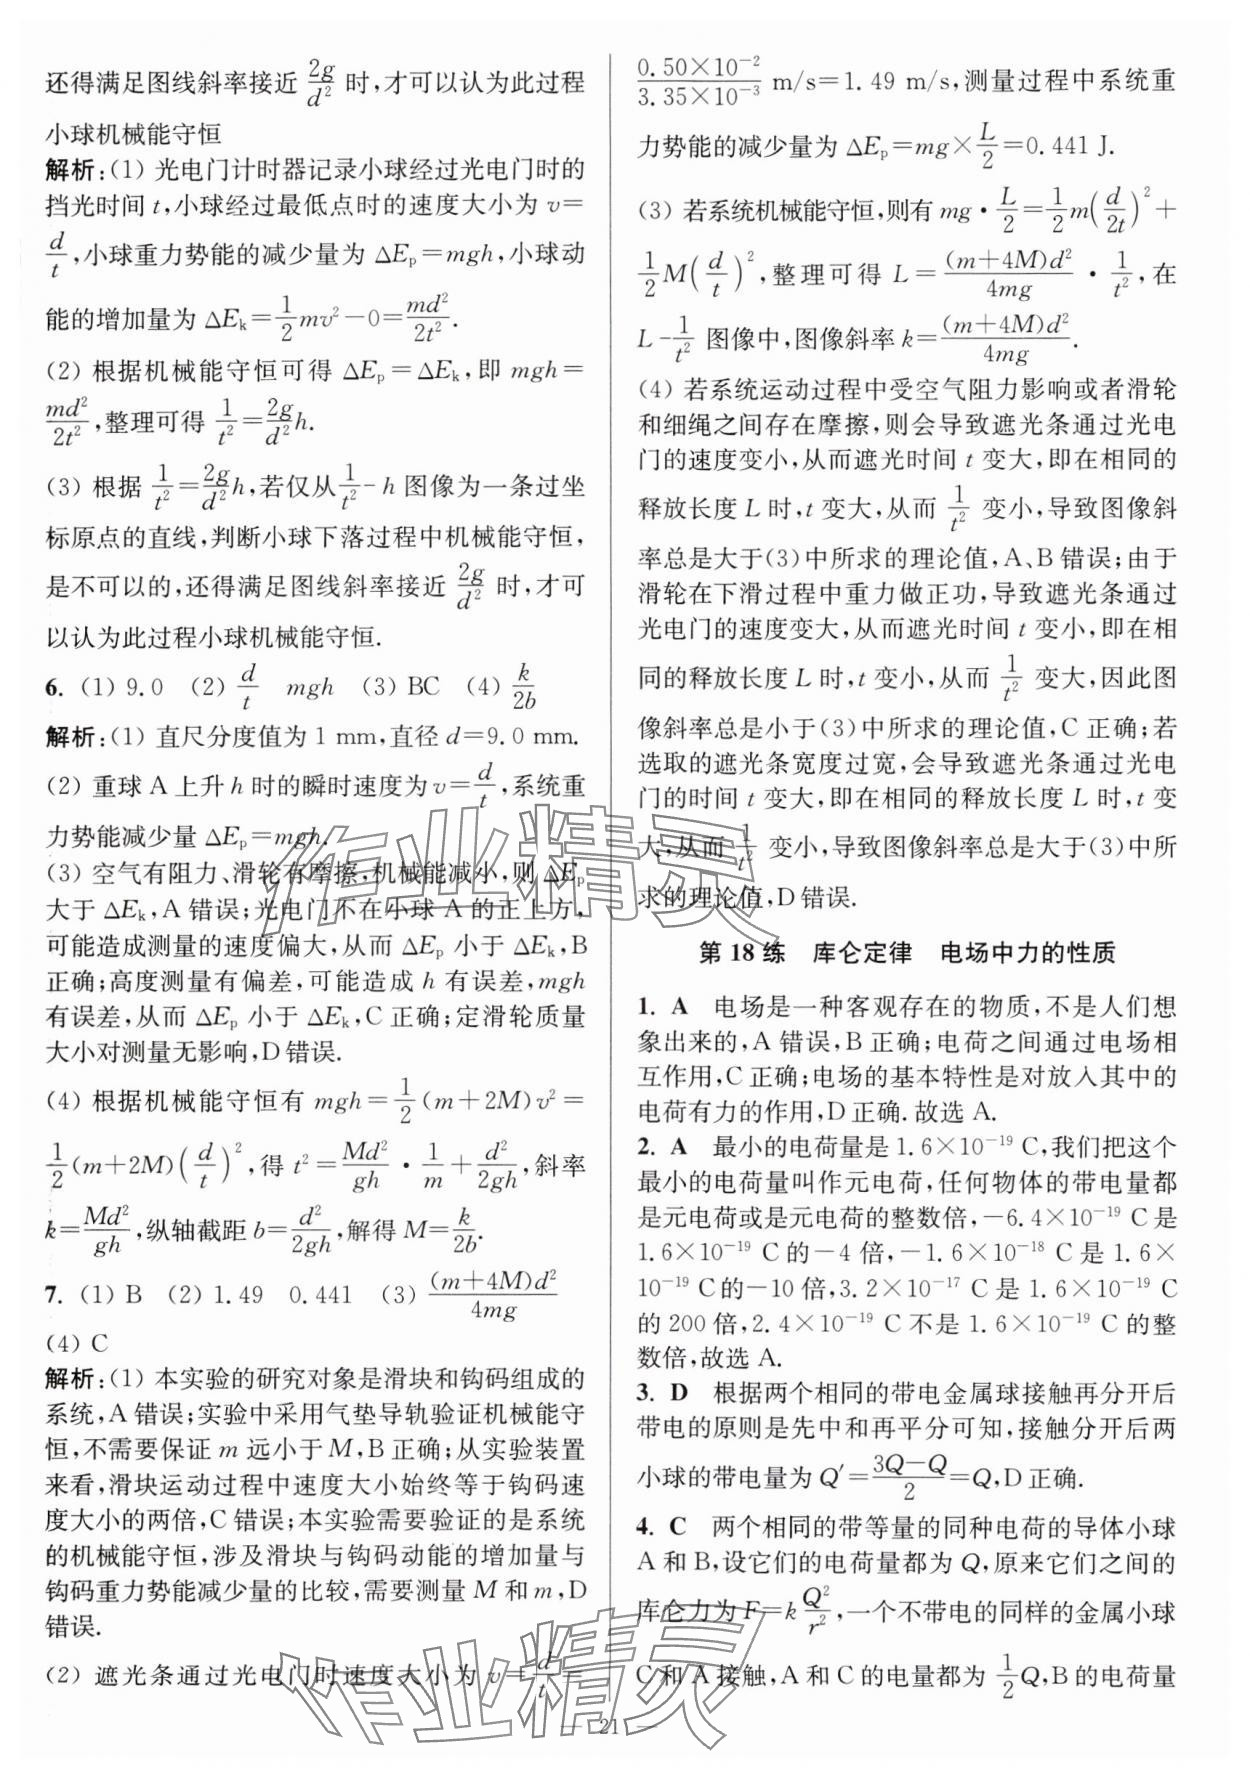 还得满足图线斜率接近 2g/d² 时,才可以认为此过程
小球机械能守恒
解析:(1) 光电门计时器记录小球经过光电门时的
挡光时间 t,小球经过最低点时的速度大小为 v=
d/t,小球重力势能的减少量为 ΔEₚ=mgh,小球动
能的增加量为 ΔEₖ=1/2 mv²-0=md²/2t².
(2) 根据机械能守恒可得 ΔEₚ=ΔEₖ,即 mgh=
md²/2t²,整理可得 1/t²=2g/d² h.
(3) 根据 1/t²=2g/d² h,若仅从 1/t²-h 图像为一条过坐
标原点的直线,判断小球下落过程中机械能守恒,
是不可以的,还得满足图线斜率接近 2g/d² 时,才可
以认为此过程小球机械能守恒.
6. (1) 9.0 (2) d/t mgh (3) BC (4) k/2b
解析:(1) 直尺分度值为 1 mm,直径 d=9.0 mm.
(2) 重球 A 上升 h 时的瞬时速度为 v=d/t,系统重
力势能减少量 ΔEₚ=mgh.
(3) 空气有阻力、滑轮有摩擦,机械能减小,则 ΔEₚ
大于 ΔEₖ,A 错误;光电门不在小球 A 的正上方,
可能造成测量的速度偏大,从而 ΔEₚ 小于 ΔEₖ,B
正确;高度测量有偏差,可能造成 h 有误差,mgh
有误差,从而 ΔEₚ 小于 ΔEₖ,C 正确;定滑轮质量
大小对测量无影响,D 错误.
(4) 根据机械能守恒有 mgh=1/2 (m+2M)v²=
1/2 (m+2M)(d/t)²,得 t²=Md²/gh·1/m+d²/2gh,斜率
k=Md²/gh,纵轴截距 b=d²/2gh,解得 M=k/2b.
7. (1) B (2) 1.49 0.441 (3) (m+4M)d²/4mg
(4) C
解析:(1) 本实验的研究对象是滑块和钩码组成的
系统,A 错误;实验中采用气垫导轨验证机械能守
恒,不需要保证 m 远小于 M,B 正确;从实验装置
来看,滑块运动过程中速度大小始终等于钩码速
度大小的两倍,C 错误;本实验需要验证的是系统
的机械能守恒,涉及滑块与钩码动能的增加量与
钩码重力势能减少量的比较,需要测量 M 和 m,D
错误.
(2) 遮光条通过光电门时速度大小为 v=d/t=
0.50×10⁻²/3.35×10⁻³ m/s=1.49 m/s,测量过程中系统重
力势能的减少量为 ΔEₚ=mg×L/2=0.441 J.
(3) 若系统机械能守恒,则有 mg·L/2=1/2 m(d/2t)²+
1/2 M(d/t)²,整理可得 L=(m+4M)d²/4mg·1/t²,在
L-1/t² 图像中,图像斜率 k=(m+4M)d²/4mg.
(4) 若系统运动过程中受空气阻力影响或者滑轮
和细绳之间存在摩擦,则会导致遮光条通过光电
门的速度变小,从而遮光时间 t 变大,即在相同的
释放长度 L 时,t 变大,从而 1/t² 变小,导致图像斜
率总是大于(3)中所求的理论值,A、B 错误;由于
滑轮在下滑过程中重力做正功,导致遮光条通过
光电门的速度变大,从而遮光时间 t 变小,即在相
同的释放长度 L 时,t 变小,从而 1/t² 变大,因此图
像斜率总是小于(3)中所求的理论值,C 正确;若
选取的遮光条宽度过宽,会导致遮光条通过光电
门的时间 t 变大,即在相同的释放长度 L 时,t 变
大,从而 1/t² 变小,导致图像斜率总是大于(3)中所
求的理论值,D 错误.
第 18 练 库仑定律 电场中力的性质
1. A 电场是一种客观存在的物质,不是人们想
象出来的,A 错误,B 正确;电荷之间通过电场相
互作用,C 正确;电场的基本特性是对放入其中的
电荷有力的作用,D 正确.故选 A.
2. A 最小的电荷量是 1.6×10⁻¹⁹ C,我们把这个
最小的电荷量叫作元电荷,任何物体的带电量都
是元电荷或是元电荷的整数倍,-6.4×10⁻¹⁹ C 是
1.6×10⁻¹⁹ C 的 -4 倍,-1.6×10⁻¹⁸ C 是 1.6×
10⁻¹⁹ C 的 -10 倍,3.2×10⁻¹⁷ C 是 1.6×10⁻¹⁹ C
的 200 倍,2.4×10⁻¹⁹ C 不是 1.6×10⁻¹⁹ C 的整
数倍,故选 A.
3. D 根据两个相同的带电金属球接触再分开后
带电的原则是先中和再平分可知,接触分开后两
小球的带电量为 Q′=3Q-Q/2=Q,D 正确.
4. C 两个相同的带等量的同种电荷的导体小球
A 和 B,设它们的电荷量都为 Q,原来它们之间的
库仑力为 F=k Q²/r²,一个不带电的同样的金属小球
C 和 A 接触,A 和 C 的电量都为 1/2 Q,B 的电荷量
— 21 —
作业精灵
作业精灵